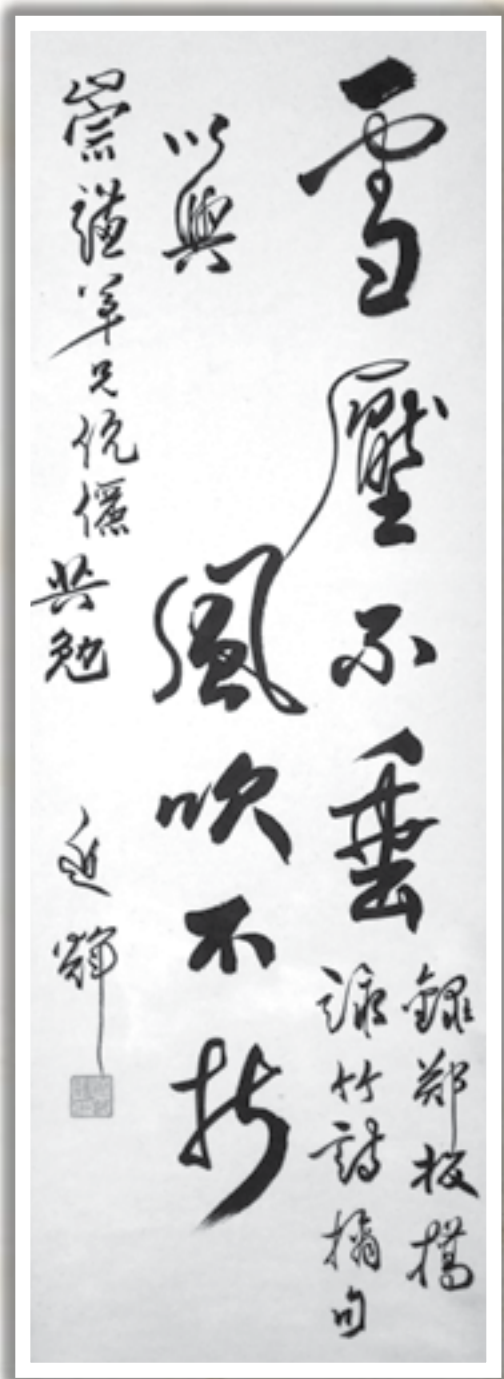 雪壓不垂
風吹不折
錄鄭板橋
詠竹詩摘句
以與
崇兄伉儷共勉
輝